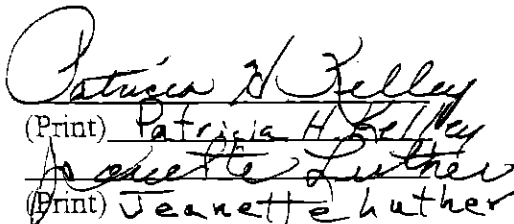 Patricia H Kelley
(Print) Patricia H Kelley
Jeanette Luther
(Print) Jeanette Luther